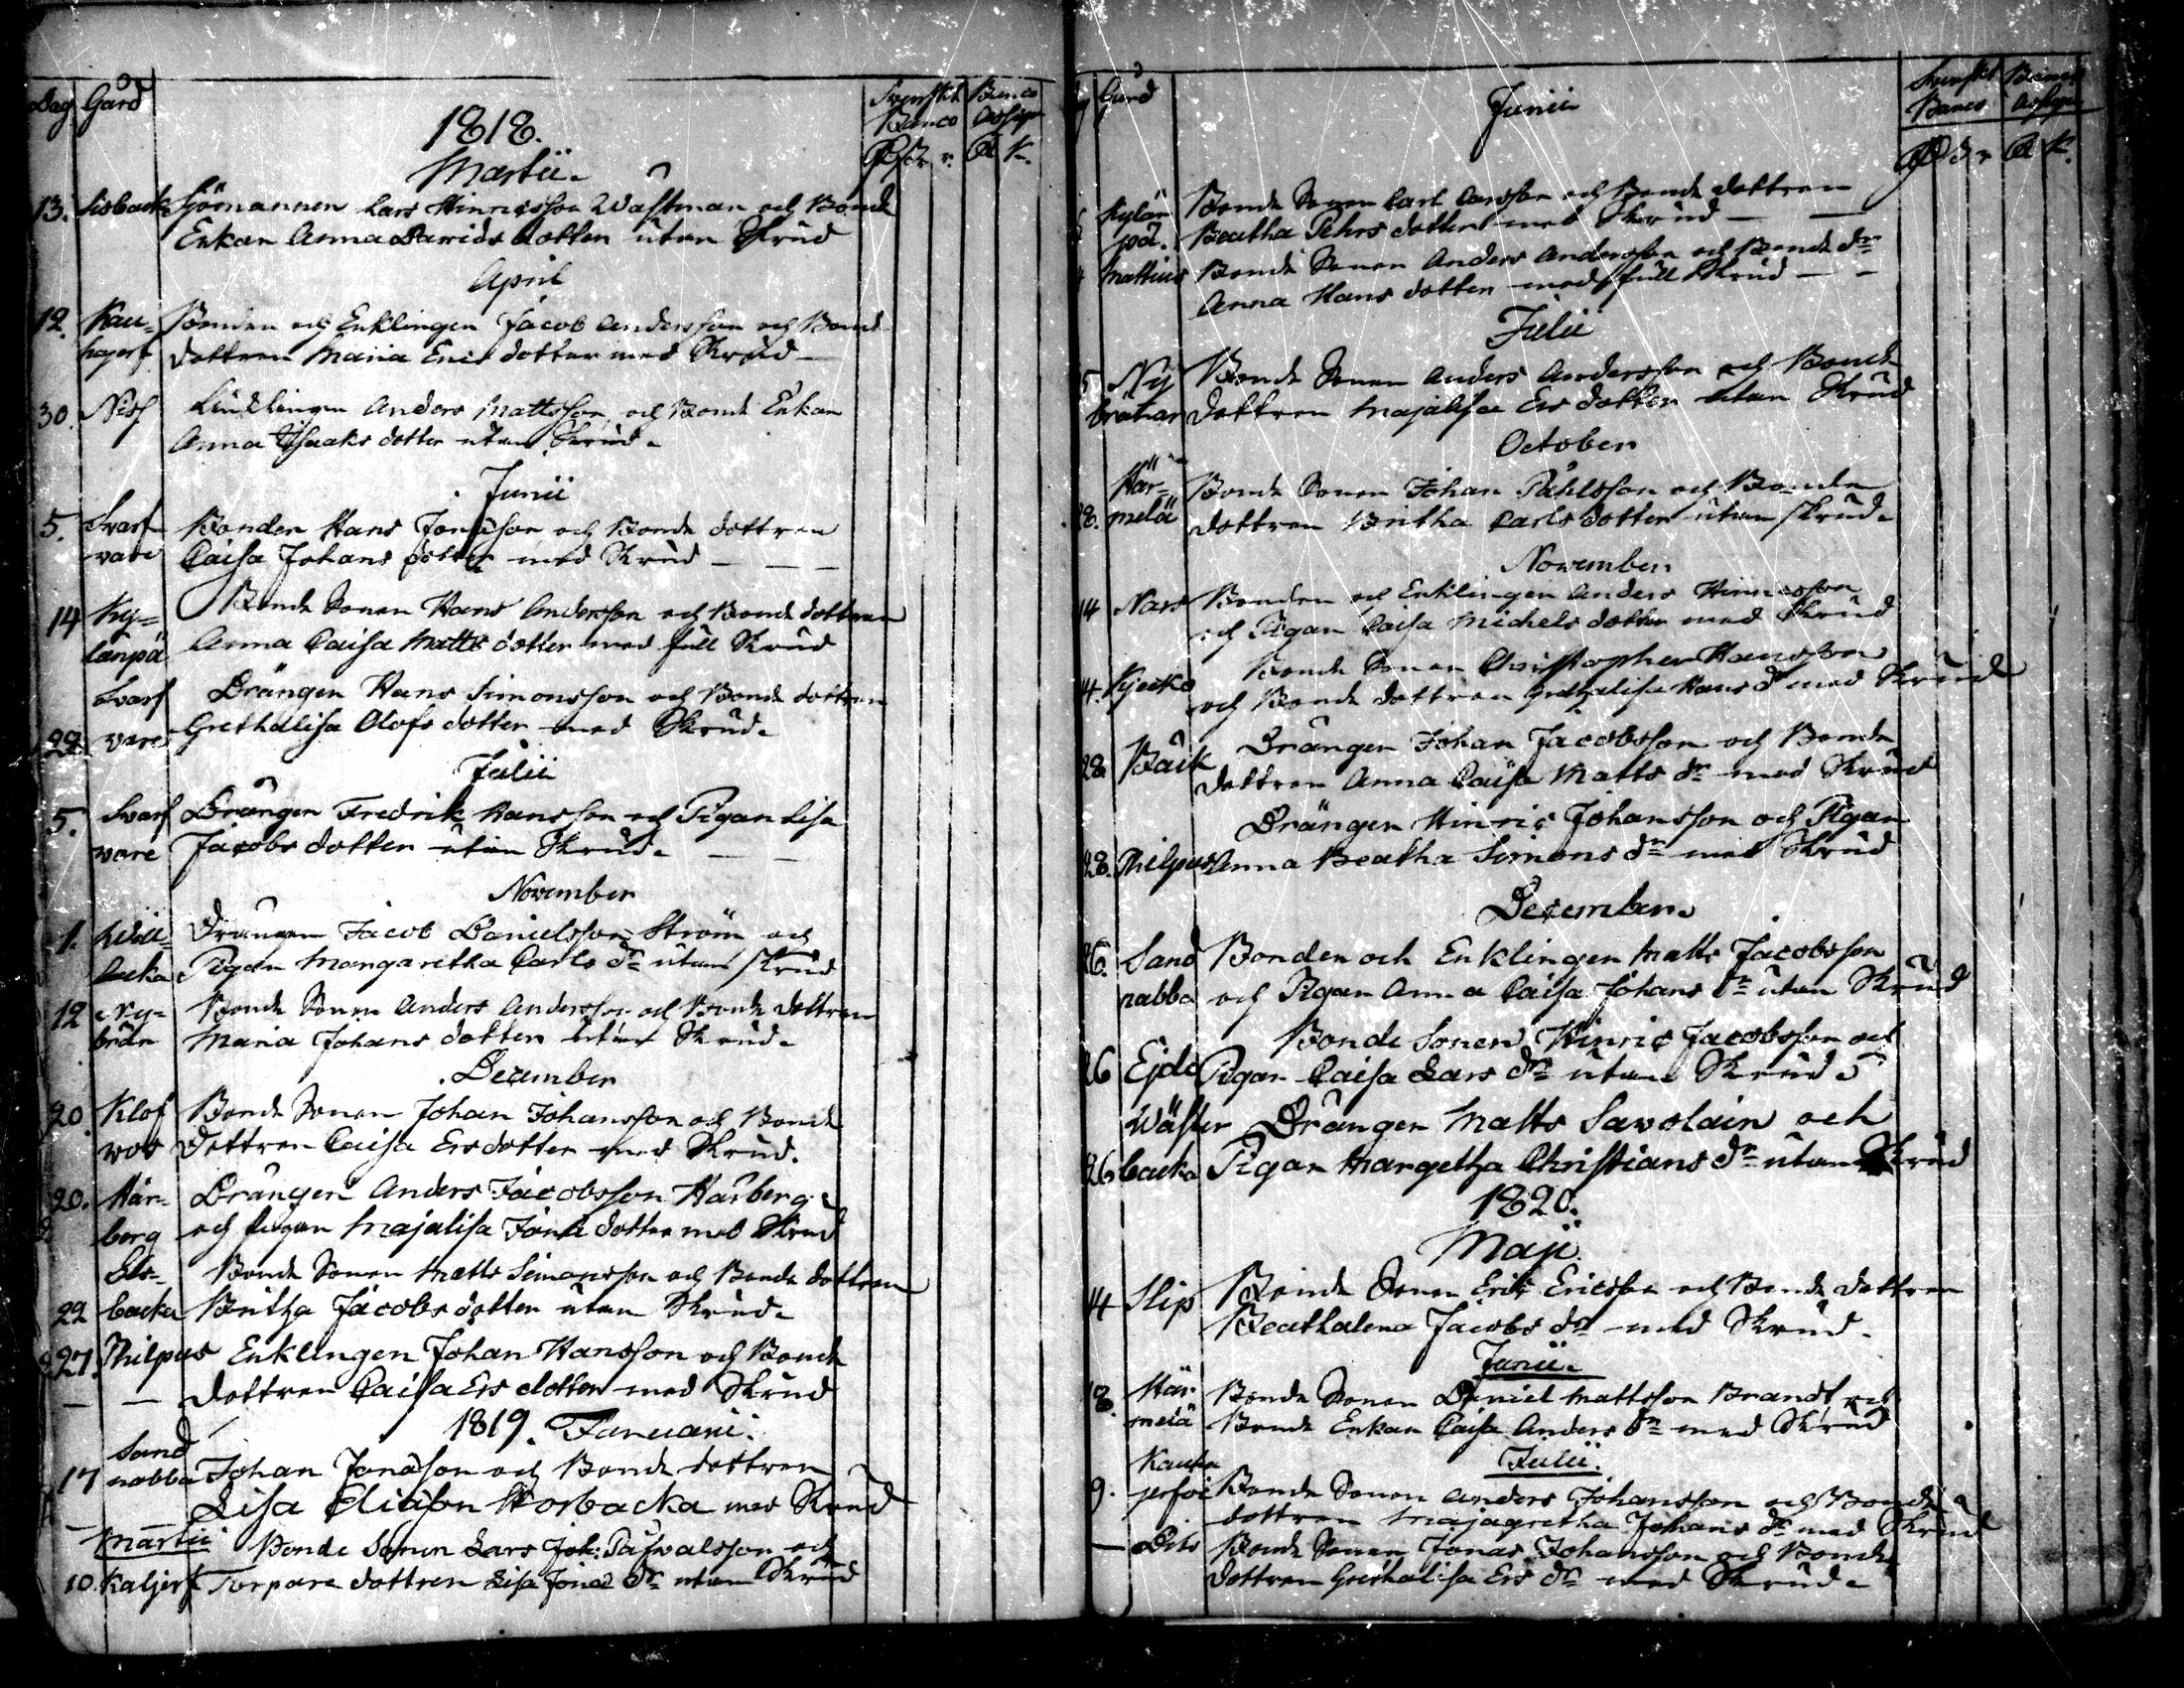 Dag Gård
Svenskt Banco
Banco Assign
1818.
Martii.
13. Lisback Sjömannen Lars Hinricsson Wästman och Bonde
Enkan Anna Davids dotter utan Skrud
April
12. Kau- Bonden och Enklingen Jacob Andersson och Bond
hajerf dottren Maria Erics dotter med Skrud
30. Nisf Anders Mattsson och Bonde Enkan
Anna Isaaks dotter utan Skrud.
Junii
5. Svarf Bonden Hans Jonasson och Bonde dottren
vare Caisa Johans dotter med Skrud
14 Ky- Bonde Sonen Hans Andersson och Bonde dottren
länpä Anna Caisa Matts dotter med full Skrud
Svarf Drängen Hans Simonsson och Bonde dottren
28. vare Grethalisa Olofs dotter med Skrud.
Julii
5. Svarf Drängen Fredrik Hansson och Pigan Lisa
vare Jacobs dotter utan Skrud.
November
1. Drängen Jacob Danielsson Ström och
backa Pigan Margaretha Carls dr utan skrud
12 Ny- Bonde Sonen Anders Andersson och Bonde dottren
brån Maria Johans dotter utan Skrud.
December
20. Klof Bonde Sonen Johan Johansson och Bonde
vos dottren Caisa Ersdotter med Skrud.
20. Hår- Drängen Anders Jacobsson Hårberg
berg och Pigan Majalisa Jona dotter med Skrud
Bonde Sonen Matts Simonsson och Bonde dottren
22 backa Britha Jacobs dotter utan Skrud.
27. Philpus Enklingen Johan Hansson och Bonde
dottren Caisa Ers dotter med Skrud
1819. Januarii.
Sand
17 nabba Johan Jonasson och Bonde dottren
Lisa Eliason Storbacka med Skrud
Martii Bonde Sonen Lars Joh: Påhvalsson och
10. Kaljerf Torpare dottren Lisa Jonas dr utan Skrud
Gård
Junii
Svenskt Banco
Banco Assign
Kylän Bonde Sonen Carl Carlsson och Bonde dottren
pä. Beatha Pehrs dotter med Skrud
Mattius Bonde Sonen Anders Andersson och Bonde dr
Anna Hans dotter med full Skrud
Julii
5 Ny Bonde Sonen Anders Andersson och Bonde
brånar dottren Majalisa Ers dotter utan Skrud
October
Här- Bonde Sonen Johan Påhlsson och Bonde
28. melä dottren Britha Carls dotter utan skrud.
November
14 Nars Bonden och Enklingen Anders Hinricsson
och Pigan Caisa Michels dotter med Skrud
Bonde Sonen Christopher Hansson
14. och Bonde dottren Grethalisa Hans dr med Skrud
28 Back Drängen Johan Jacobsson och Bonde
dottren Anna Caisa Matts dr med Skrud
Drängen Hinric Johansson och Pigan
28. Philpus Anna Beatha Simons dr med Skrud
December.
26. Sand Bonden och Enklingen Matts Jacobsson
nabba och Pigan Anna Caisa Johans dr utan Skrud
Bonde Sonen Hinric Jacobsson och
26 Pigan Caisa Lars dr utan Skrud
Wäster Drängen Matts Savolain och
26 backa Pigan Margetha Christians dr utan Skrud
1820.
Maji.
14 Slip Bonde Sonen Eric Ericsson och Bonde dottren
Beathalena Jacobs dr med Skrud.
Junii.
18. Här- Bonde Sonen Daniel Mattsson Brandt och
melä Bonde Enkan Caisa Anders dr med Skrud
Julii.
Kauha
9. jerfoi Bonde Sonen Anders Johansson och Bonde
dottren Majagretha Johans dr med Skrud
— Dito Bonde Sonen Jonas Johansson och Bonde
dottren Grethalisa Ers dr med Skrud.